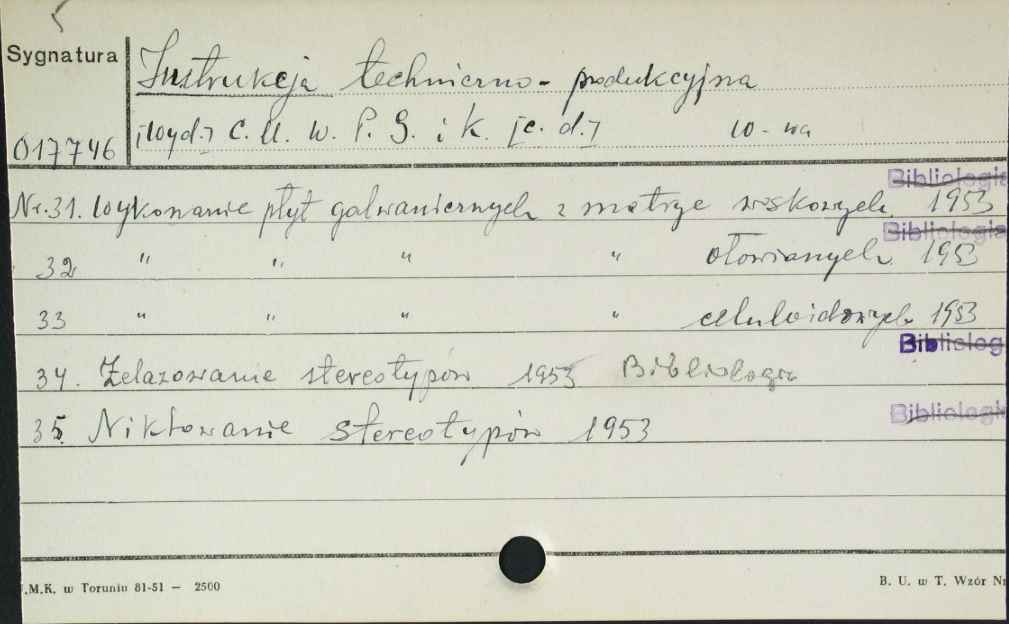 Sygnatura
Instrukcja techniczno-produkcyjna
017746
[wyd.] C. U. W. P. G. i K. [c. d.] W-wa
Bibliologia
Nr. 31. Wykonanie płyt galwanicznych z matryc woskowych 1953
Bibliologia
32 " " " " ołowianych 1953
33 " " " " celuloidowych 1953
Bibliolog
34. Żelazowanie stereotypów 1953 Bibliologia
Bibliologi
35. Niklowanie stereotypów 1953
.M.K. w Toruniu 81-51 — 2500
B. U. w T. Wzór Nr